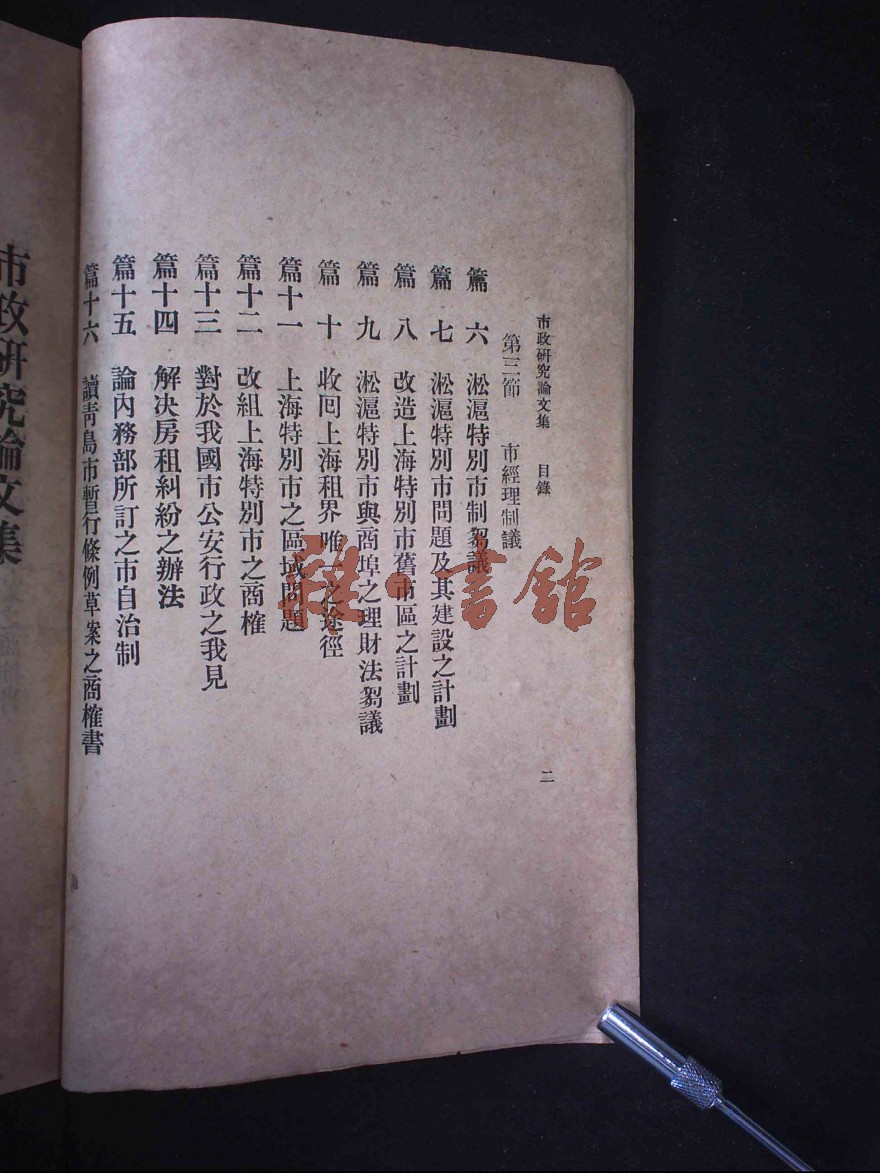 市政研究論文集　目錄　二
第三節　市經理制議
篇六　淞滬特別市制芻議
篇七　淞滬特別市問題及其建設之計劃
篇八　改造上海特別市舊市區之計劃
篇九　淞滬特別市與商埠之理財法芻議
篇十　收回上海租界唯一之途徑
篇十一　上海特別市之區域問題
篇十二　改組上海特別市之商榷
篇十三　對於我國市公安行政之我見
篇十四　解決房租糾紛之辦法
篇十五　論內務部所訂之市自治制
篇十六　讀靑島市暫行條例草案之商榷書
市政研究論文集
雜·書館